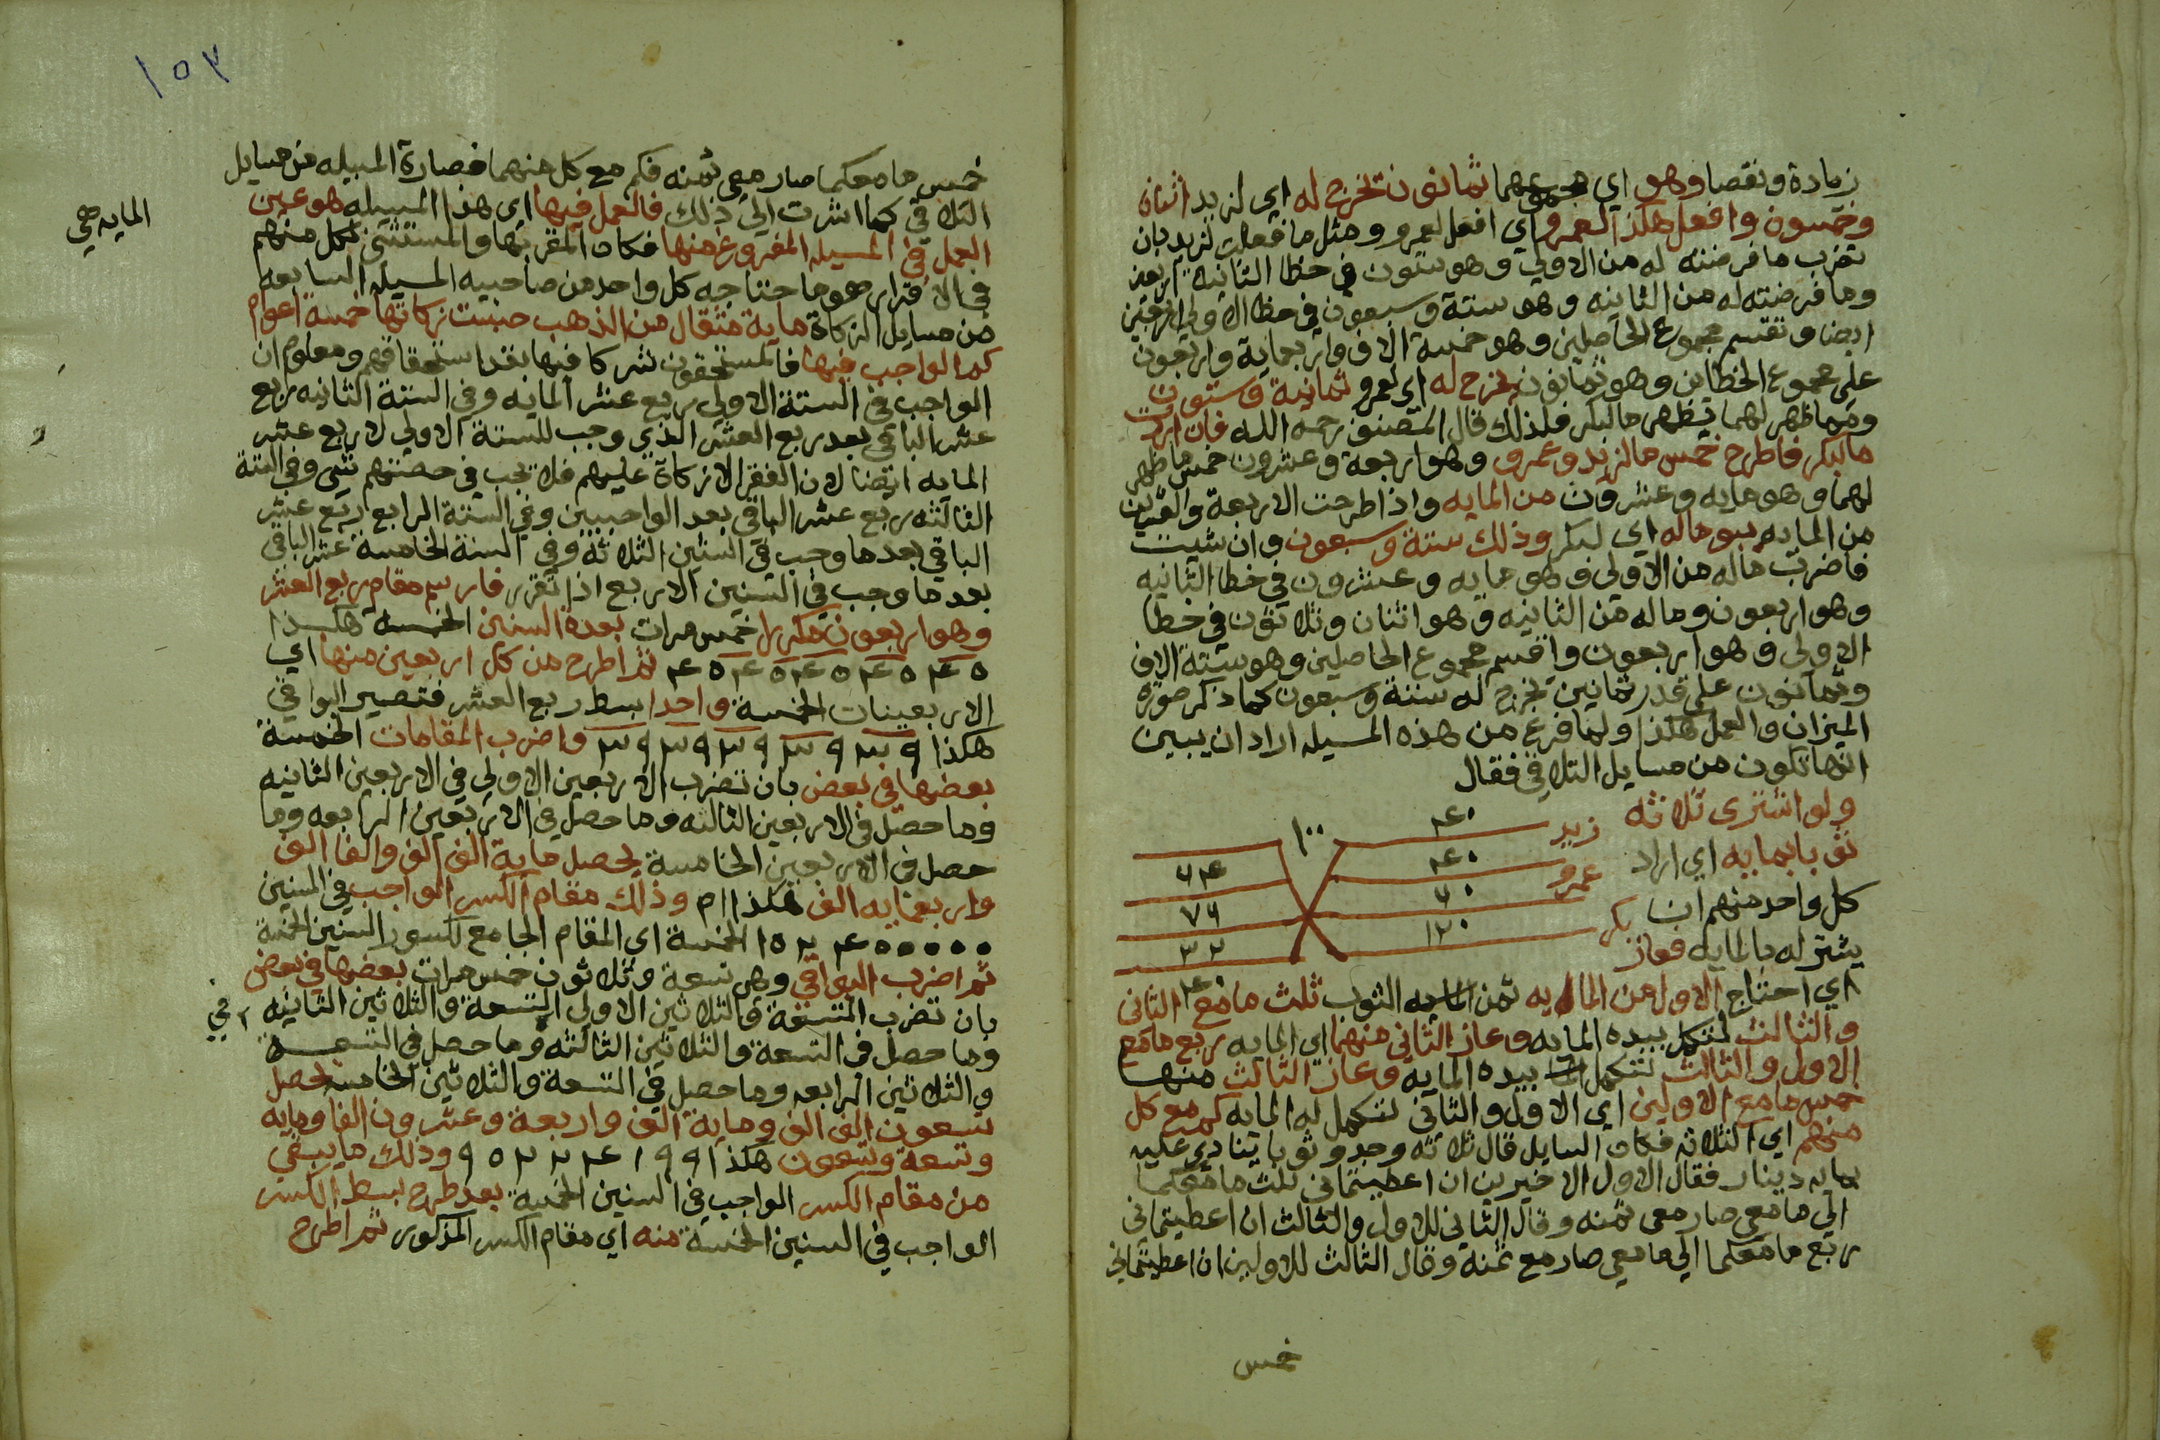 زيادة ونقصا وهو اي مجموعهما ثمانون تخرج له اي لزيد اثنان
وخمسون وافعل هكذا لعمرو اي افعل لعمرو ومثل ما فعلت لزيد بان
تضرب ما فرضته له من الاولي وهو ستون في خطا الثانية اربعين
وما فرضته له من الثانيه وهو ستة وسبعون في خطا الاولي اربعين
ايضا وتقسم مجموع الحاصلين وهو خمسة الاف واربعماية واربعون
علي مجموع الخطاين وهو ثمانون يخرج له اي لعمرو ثمانية وستون
ومما ظهر لهما يظهر ما لبكر فلذلك قال المصنف رحمه الله فان اردت
ما لبكر فاطرح خمس ما لزيد وعمرو وهو اربعة وعشرون خمس ما ظهر
لهما وهو مايه وعشرون من المايه واذا طرحت الاربعة والعشرين
من المايه يبق ماله اي لبكر وذلك ستة وسبعون وان شيت
فاضرب ماله من الاولي وهو مايه وعشرون في خطا الثانيه
وهو اربعون وماله من الثانيه وهو اثنان وثلاثون في خطا
الاولي وهو اربعون واقسم مجموع الحاصلين وهو ستة الاف
وثمانون علي قدر ثمانين يخرج له ستة وسبعون كما ذكر صورة
الميزان والعمل هكذا ولما فرغ من هذه المسيله اراد ان يبين
انها تكون من مسايل التلافي فقال
ولو اشترى ثلاثه
ثوبا بمايه اي اراد
كل واحد منهم ان
يشتر له بالمايه فعاز
زيد ٤٠ ١٠٠
عمرو ٤٠ ٦٤
٦٠ ٧٦
بكر ١٢٠ ٣٢
٤٠
اي احتاج الاول من المايه ثمن الثوب ثلث ما مع الثاني
والثالث لتكمل بيده المايه وعاز الثاني منهما اي المايه ربع ما مع
الاول والثالث لتكمل بيده المايه وعاز الثالث منها
خمس ما مع الاولين اي الاول والثاني لتكمل له المايه كم مع كل
منهم اي الثلاثه فكان السايل قال ثلاثه وجدو ثوبا ينادي عليه
بمايه دينار فقال الاول الاخيرين ان اعطيتماني ثلث ما معكما
الي ما معي صار معي ثمنه وقال الثاني للاول والثالث ان اعطيتماني
ربع ما معكما الي ما معي صار مع ثمنه وقال الثالث للاولين ان اعطيتماني
خمس
١٥٣
خمس ما معكما صار معي ثمنه فكم مع كل منهما فصارة المسيله من مسايل
التلافي كما اشرت الي ذلك فالعمل فيها اي هذا المسيله هو عين
العمل في المسيله المفروغ منها فكان المقر بها والمستثني لكل منهم
في الاقرار هو ما احتاجه كل واحد من صاحبيه المسيله السابعه
من مسايل الزكاة ماية مثقال من الذهب حبست زكاتها خمسة اعوام
كم الواجب فيها فالمستحقون شركا فيها بقدر استحقاقهم ومعلوم ان
الواجب في السنة الاولي ربع عشر المايه وفي السنة الثانيه ربع
عشر الباقي بعد ربع العشر الذي وجب للسنة الاولي لا ربع عشر
المايه ايضا لان الفقرا لا زكاة عليهم فلا تجب في حصتهم شي وفي السنة
الثالثه ربع عشر الباقي بعد الواجبين وفي السنة الرابع اربع عشر
الباقي بعد ما وجب في السنين الثلاثة وفي السنة الخامسة عشر الباقي
بعد ما وجب في السنين الاربع اذا تقرر فارسم مقام ربع العشر
وهو اربعون مكررا خمس مرات بعدة السنين الخمسة هكذا
٥ ٤ ٥ ٤ ٥ ٤ ٥ ٤ ٥ ٤ ثم اطرح من كل اربعين منها اي
الاربعينات الخمسة واحدا بسط ربع العشر فتصير البواقي
هكذا ٩ ٣ ٩ ٣ ٩ ٣ ٩ ٣ ٩ ٣ واضرب المقامات الخمسة
بعضها في بعض بان تضرب الاربعين الاولي في الاربعين الثانيه
وما حصل في الاربعين الثالثه وما حصل في الاربعين الرابعه وما
حصل في الاربعين الخامسة يحصل ماية الف الف والفا الف
واربعمايه الف هكذا ام وذلك مقام الكسر الواجب في السنين
٥ ٥ ٥ ٥ ٥ ٤ ٢ ٥ ١ الخمسة اي المقام الجامع لكسور السنين الخمسة
ثم اضرب البواقي وهي تسعة وثلاثون خمس مرات بعضها في بعض
بان تضرب التسعة والثلاثين الاولي التسعة والثلاثين الثانيه
وما حصل في التسعة والثلاثين الثالثه وما حصل في التسعة
والثلاثين الرابعه وما حصل في التسعة والثلاثين الخامسه يحصل
تسعون الف الف وماية الف واربعة وعشرون الفا ومايه
وتسعة وتسعون هكذا ٩ ٩ ١ ٤ ٢ ٢ ٥ ٩ وذلك ما يبقي
من مقام الكسر الواجب في السنين الخمسة بعد طرح بسط الكسر
الواجب في السنين الخمسة منه اي مقام الكسر المذكور ثم اطرح
المايه هي
في